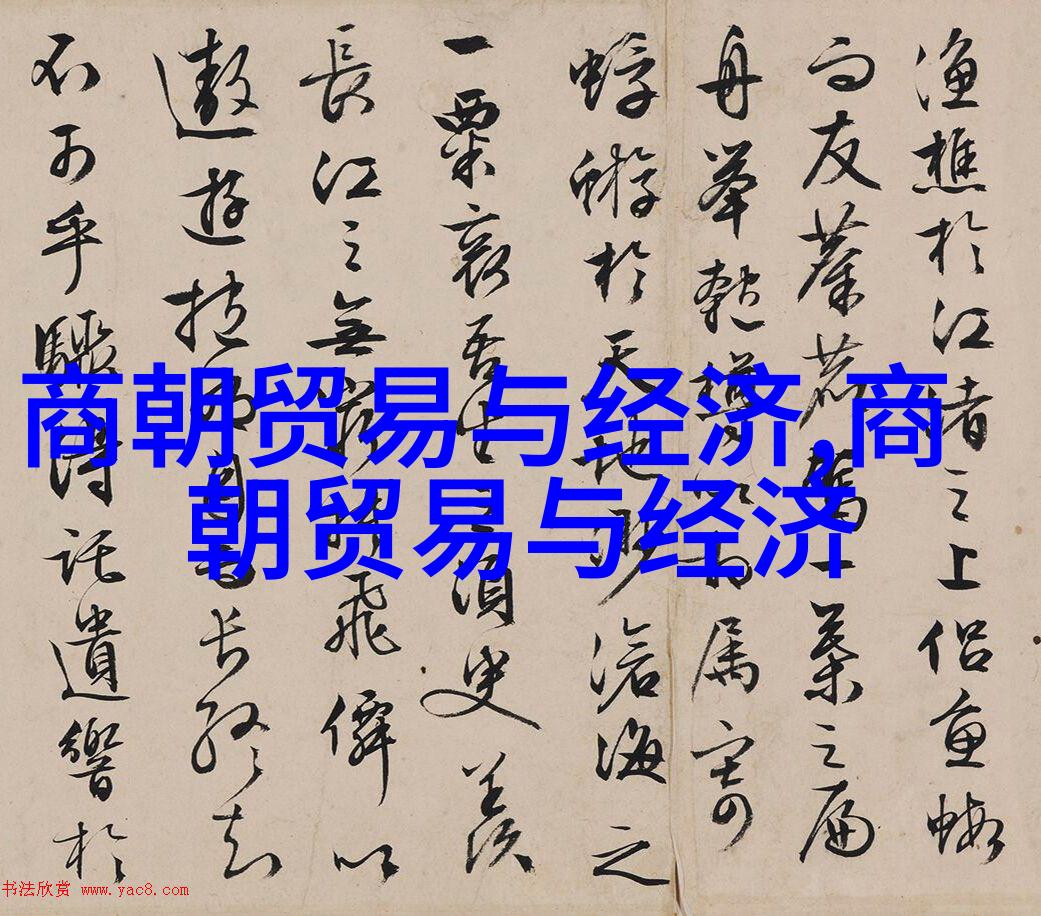 漁樵於江渚之上侶魚蝦
而友麋鹿駕一葉之扁
舟舉匏樽以相属寄
蜉蝣於天地眇滄海之
一粟哀吾生之須臾羨
長江之無窮挾飛僊以
遨遊抱明月而長終知
不可乎驟得託遺響於
商朝贸易与经济,商
朝贸易与经济
书法欣赏 www.yac8.com